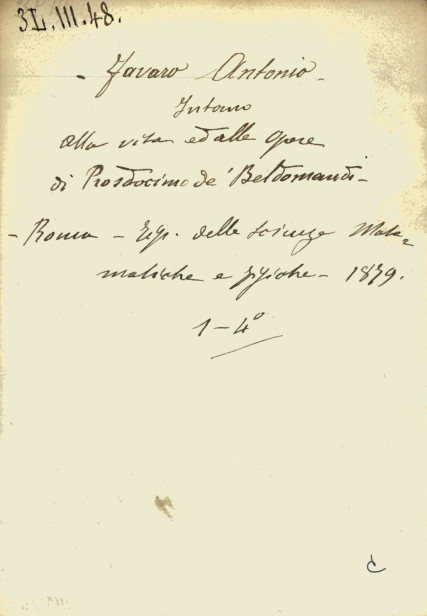 3L.III.48.
- Favaro Antonio -
Intorno
alla vita ed alle Opere
di Prosdocimo de' Beldomandi -
- Roma - Tip. delle Scienze Mate=
matiche e Fisiche - 1879.
1-4°
C